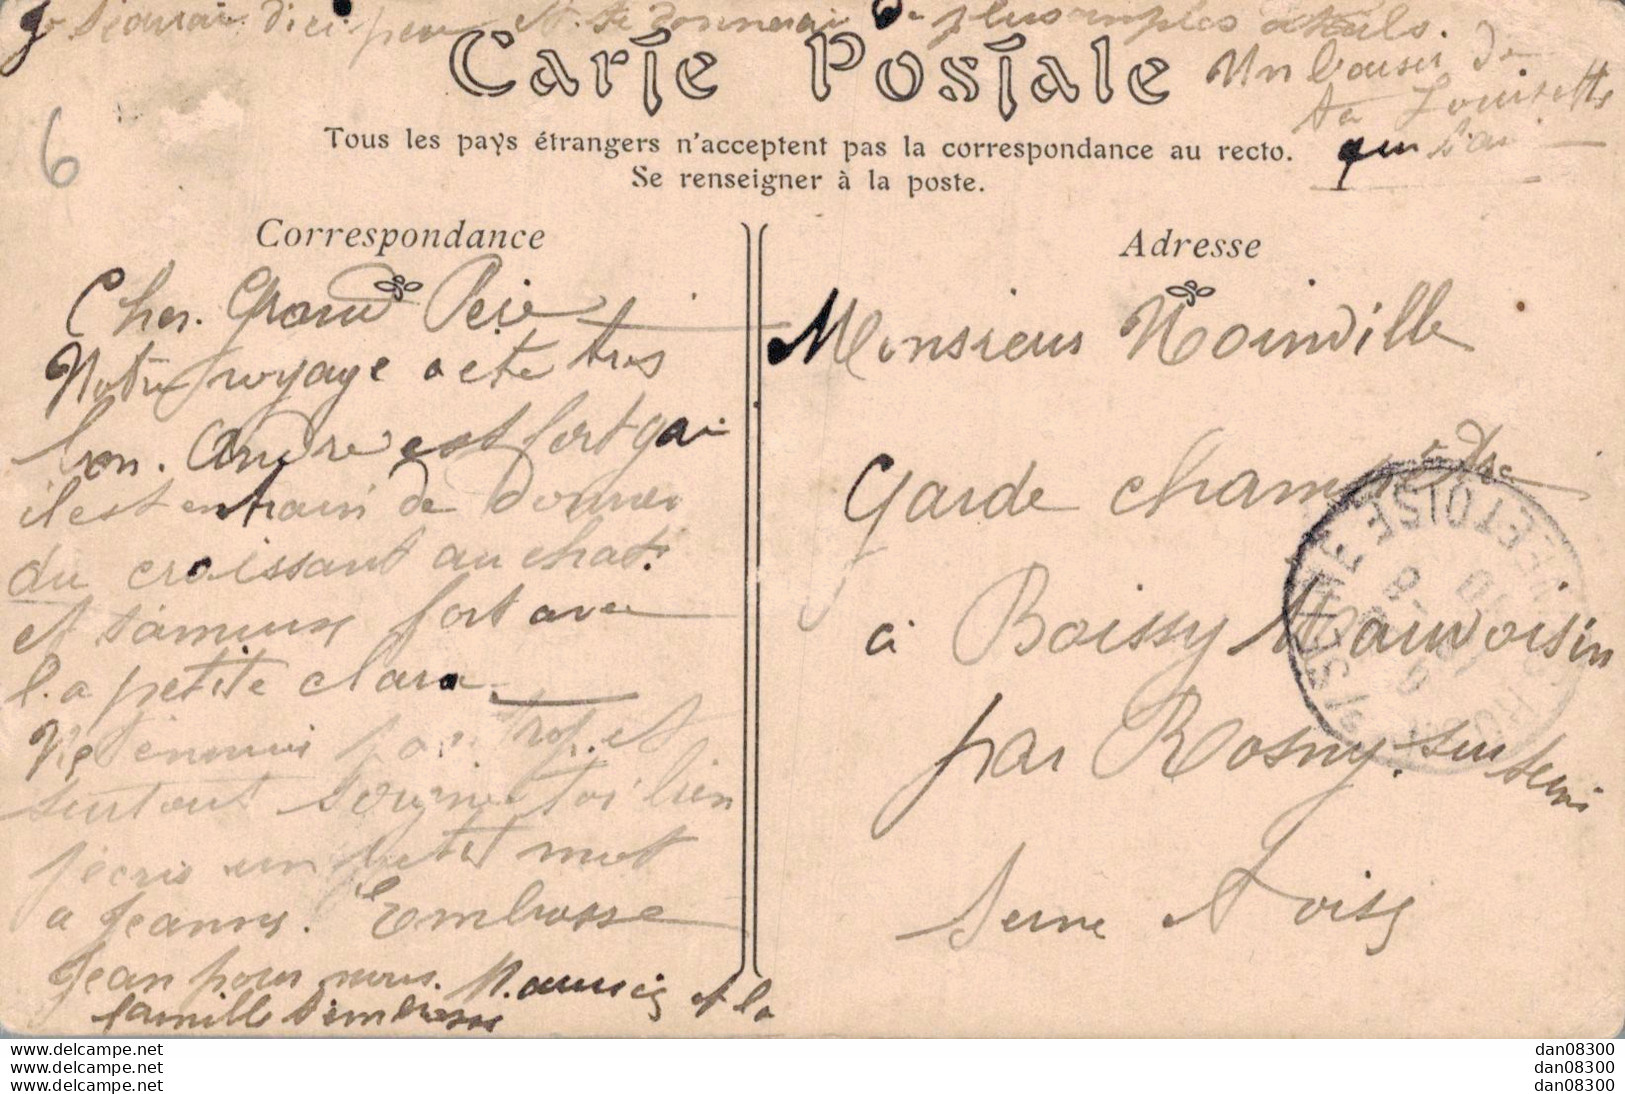 et te donnerai de plus amples details.
Un baiser de
ta Louisette
qui
Carte Postale
Tous les pays étrangers n'acceptent pas la correspondance au recto.
Se renseigner à la poste.
6
Correspondance
Cher Grand Père
Notre voyage a ete tres
bon. André est fort gai
il est entrain de donner
du croissant au chat
et s'amuse fort avec
la petite Clara
Ne t'ennuie pas trop. et
surtout soigne toi bien
j'ecris un petit mot
a Jeanne. Embrasse
Jean pour nous. Maurice et la
famille t'embrasse
Adresse
Monsieur Noinville
Garde champêtre
à Boissy Mauvoisin
par Rosny sur Seine
Seine et Oise
SEINE ET OISE
www.delcampe.net
www.delcampe.net
www.delcampe.net
dan08300
dan08300
dan08300